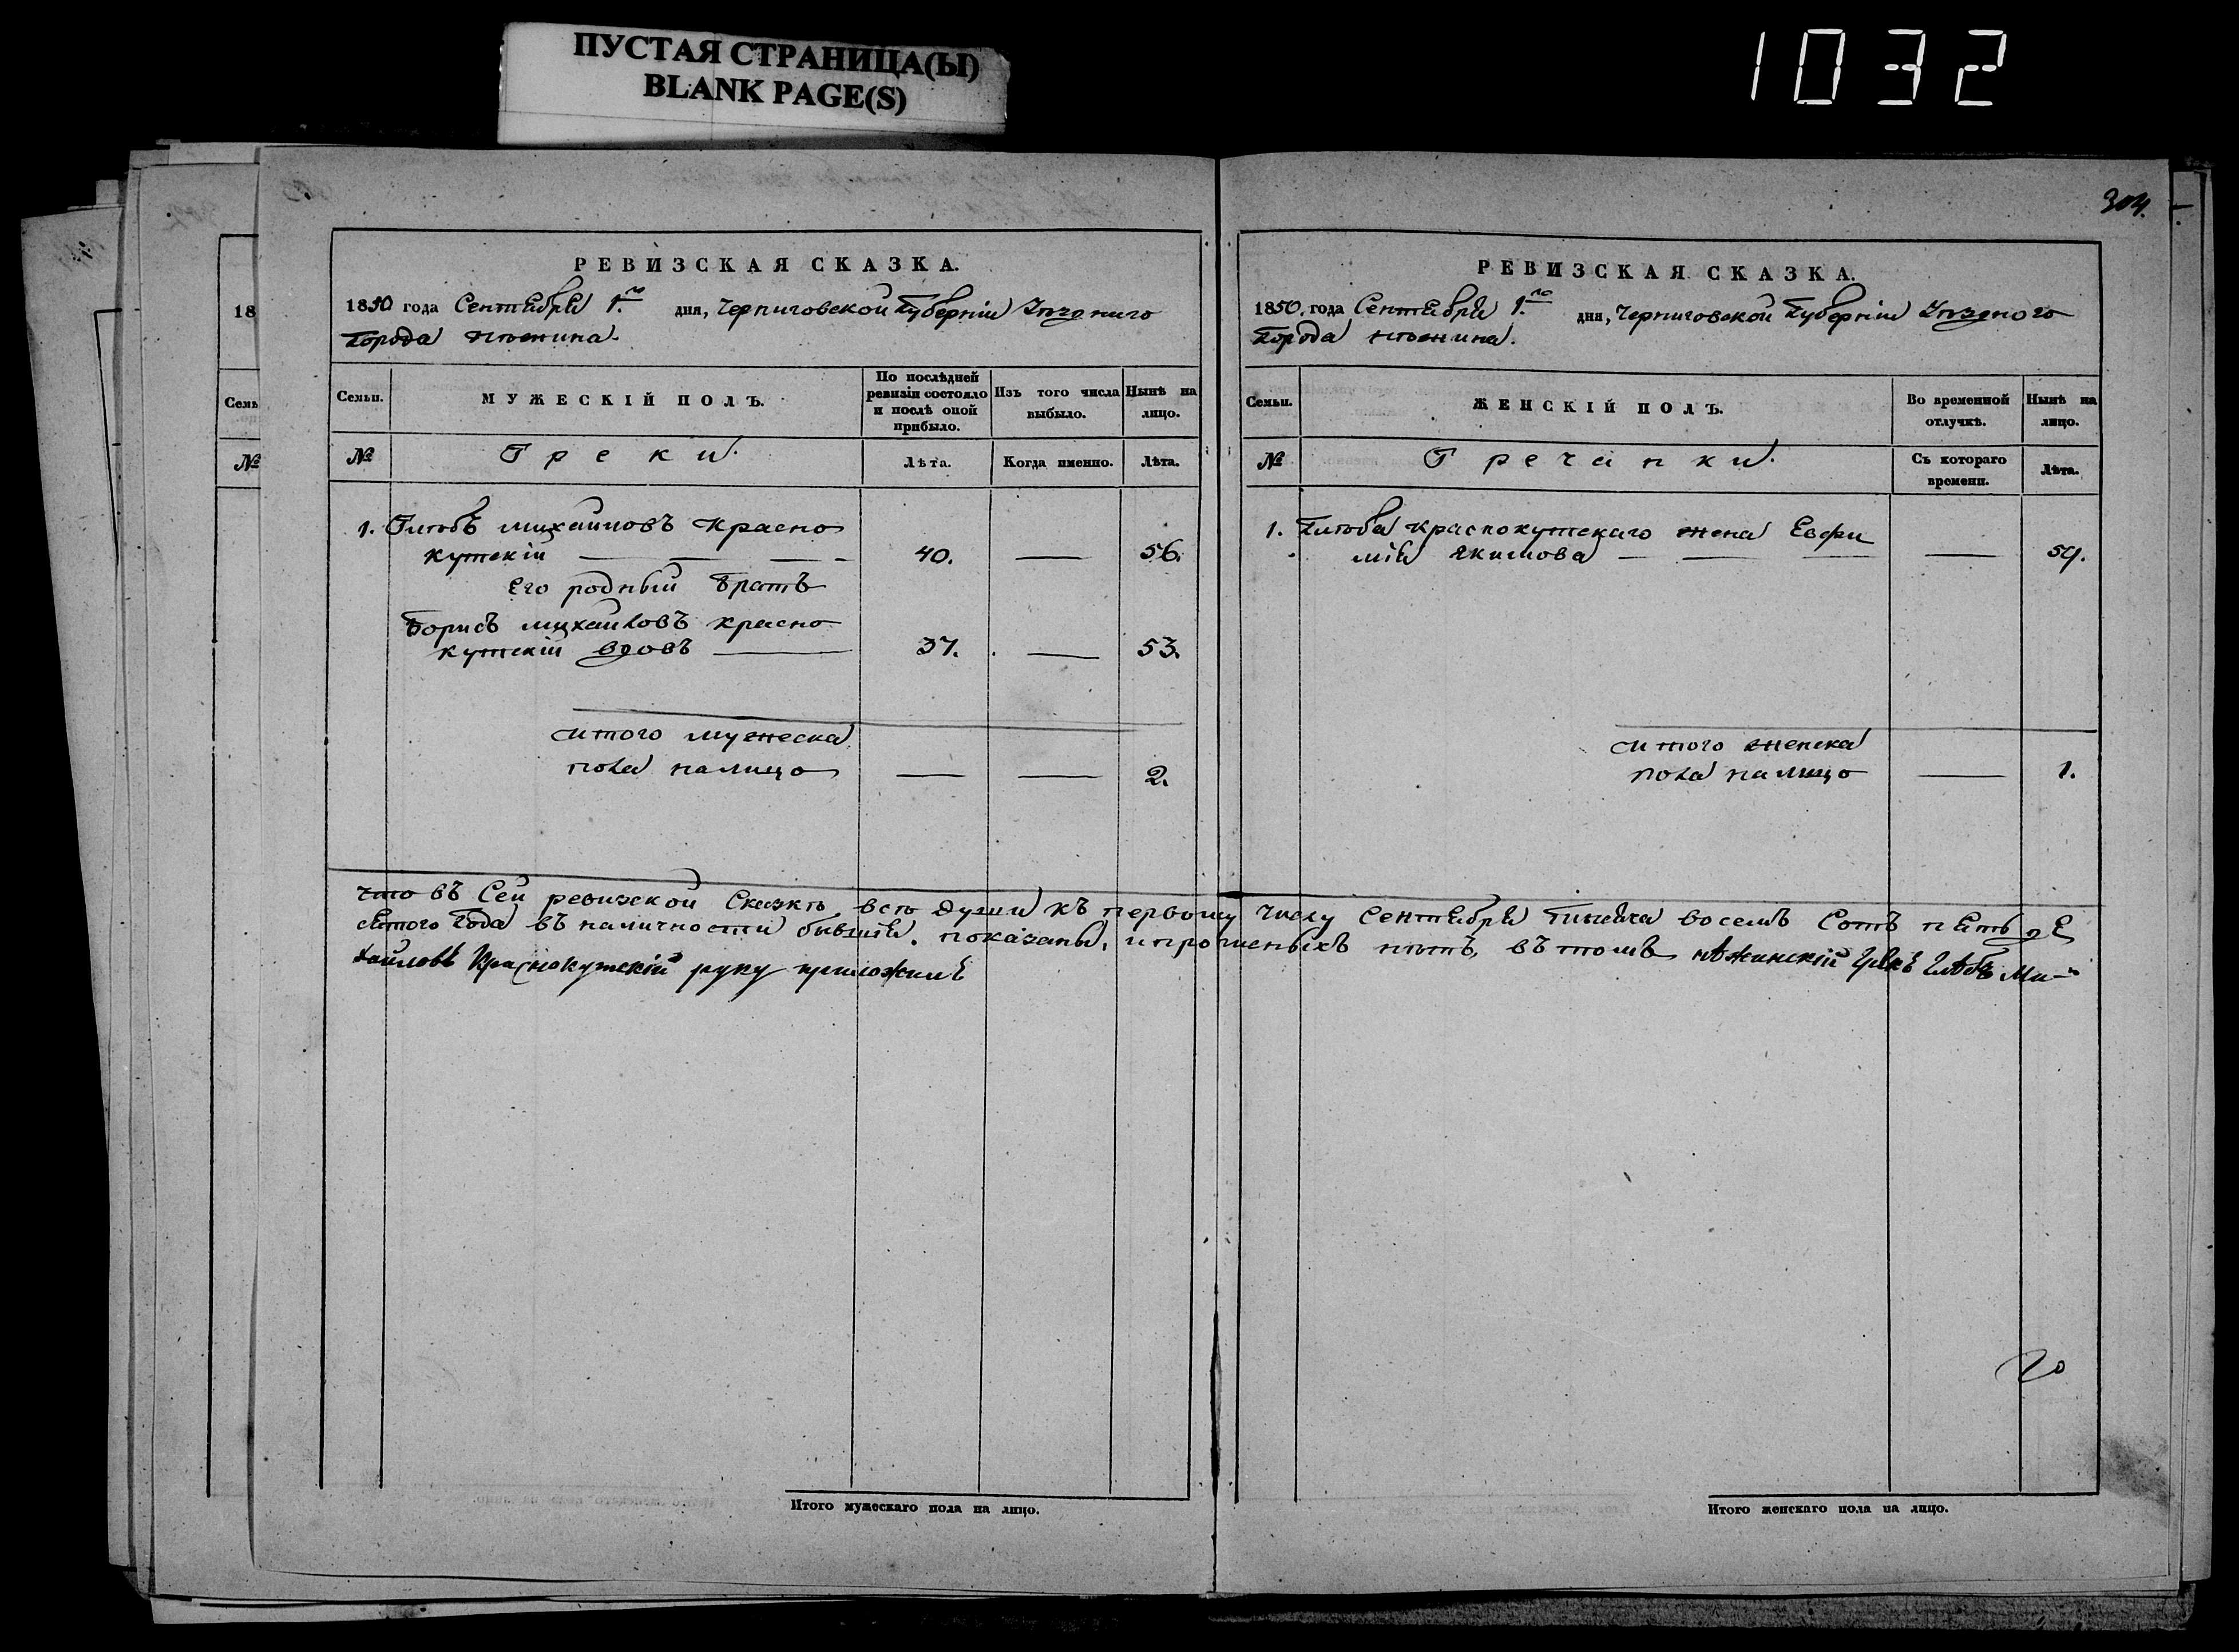 ПУСТАЯ СТРАНИЦА(Ы)
BLANK PAGE(S)
1032
304.
18
Семь
№
РЕВИЗСКАЯ СКАЗКА.
1850 года Сентября 1.го дня, Черниговской Губерніи Уѣзднаго
Города Нѣжина.
Семьи.
МУЖЕСКІЙ ПОЛЪ.
По послѣдней
ревизіи состояло
и послѣ оной
прибыло.
Изъ того числа
выбыло.
Нынѣ на
лицо.
№
Греки.
Лѣта.
Когда именно.
Лѣта.
1. Глѣбъ Михайловъ Красно
кутскій 40. — 56.
Его родный братъ
Борисъ Михайловъ Красно
кутскій вдовъ 37. — 53.
Итого мужеска
пола налицо — — 2.
РЕВИЗСКАЯ СКАЗКА.
1850, года Сентября 1.го дня, Черниговской Губерніи Уѣзднаго
Города Нѣжина.
Семьи.
ЖЕНСКІЙ ПОЛЪ.
Во временной
отлучкѣ.
Нынѣ на
лицо.
№
Гречанки.
Съ котораго
времени.
Лѣта.
1. Глѣба Краснокутскаго жена Евфи
мія Якимова — 59.
Итого женска
пола налицо — 1.
Что въ Сей ревизской Сказкѣ всѣ души къ первому числу Сентября тысяча восемъ Сотъ пятьде
сятого Года въ наличности бывшія, показаны, и прописныхъ нѣтъ, въ томъ нѣжинскій Грекъ Глѣбъ Ми-
хайловъ Краснокутскій руку приложилъ
Итого мужескаго пола на лицо.
Итого женскаго пола на лицо.